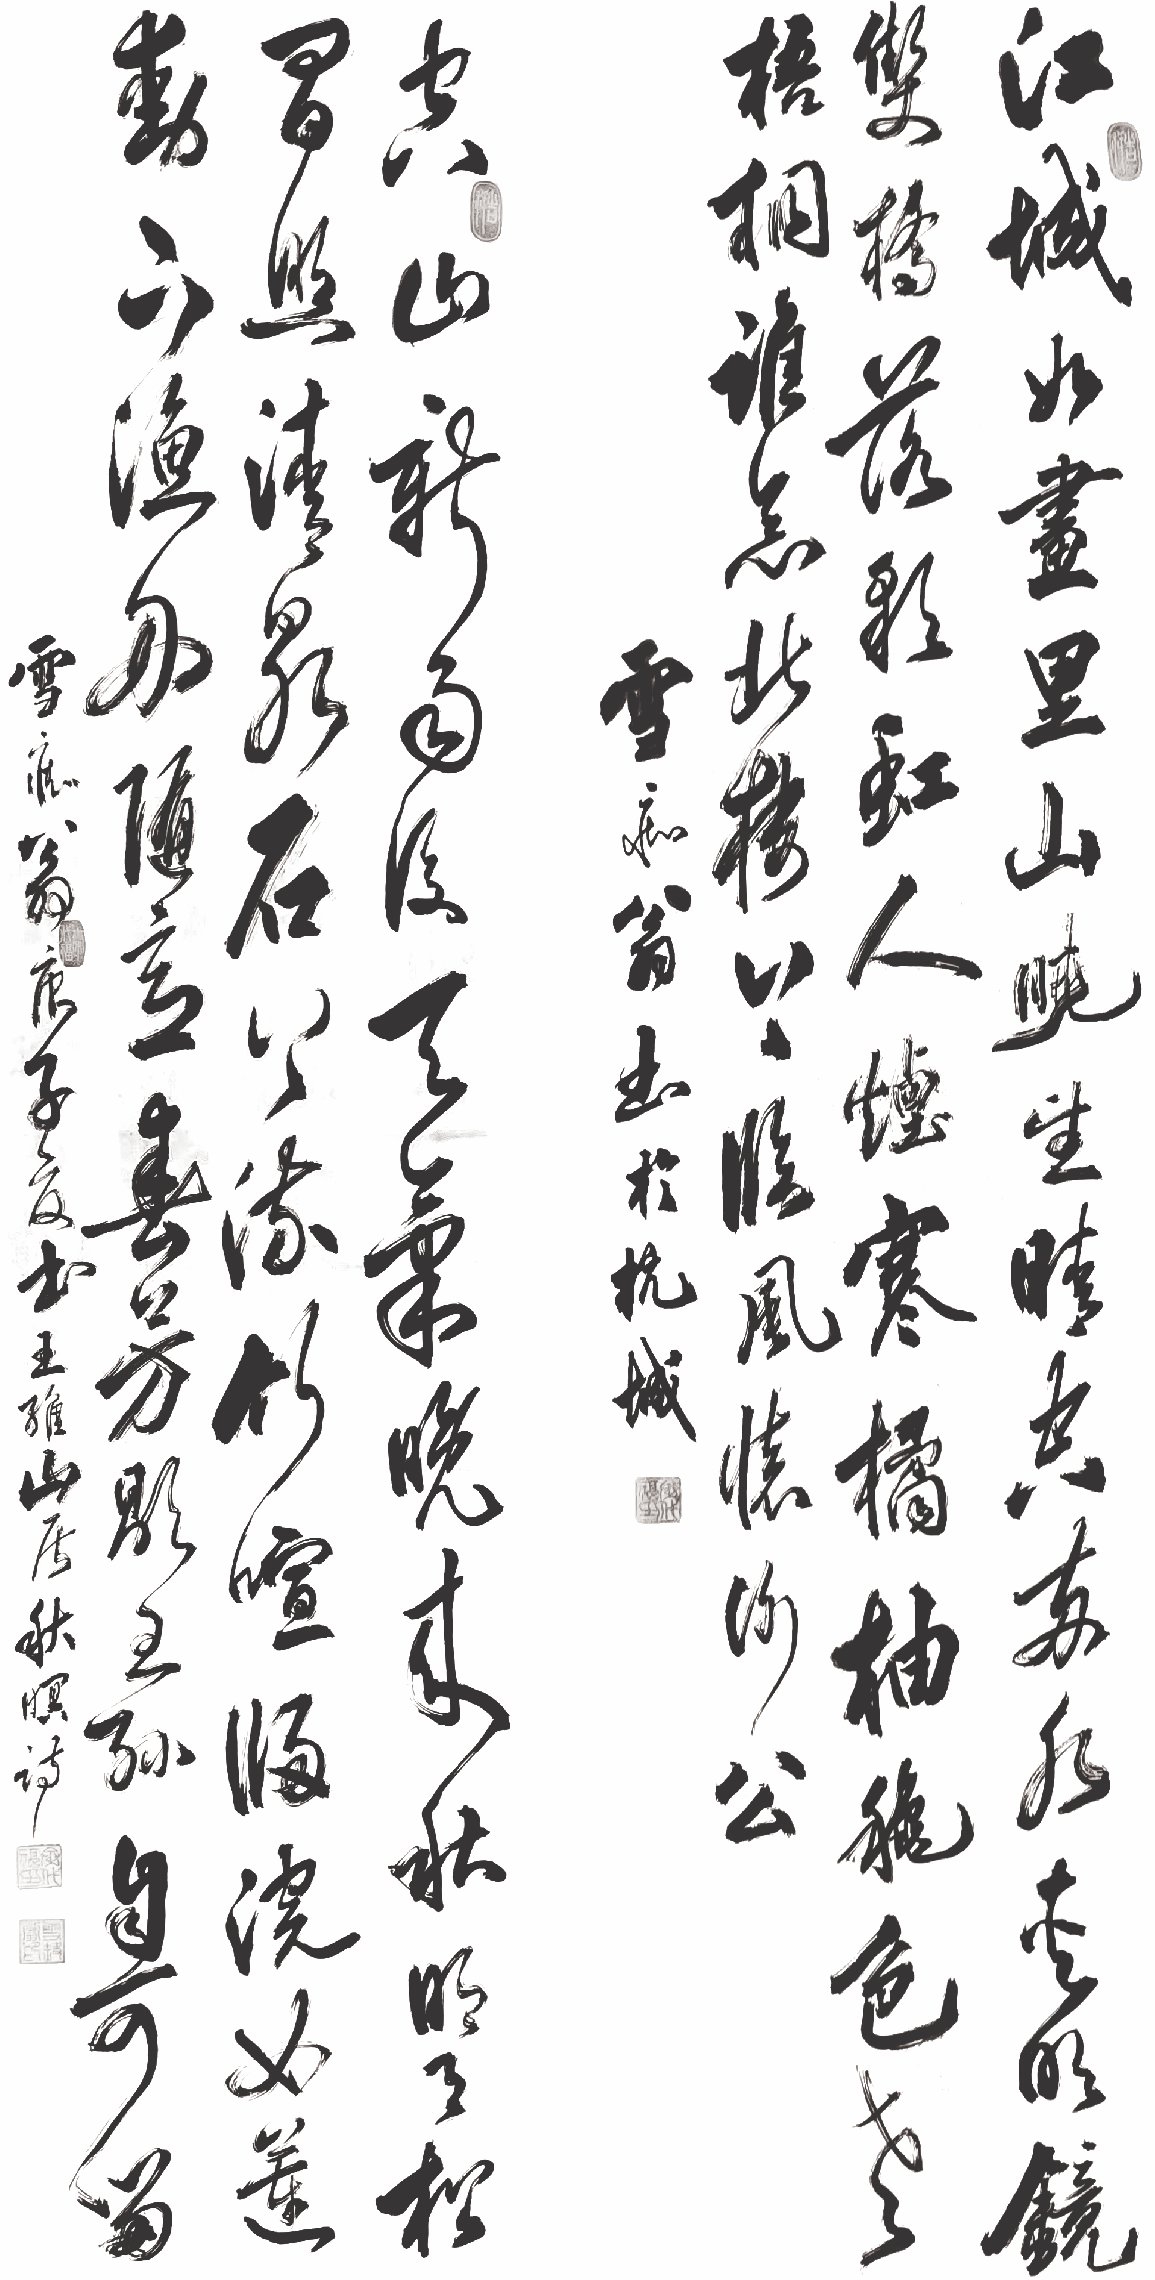 江城如畫里山曉望晴空兩水夾明鏡
雙橋落彩虹人煙寒橘柚穐色老
梧桐誰念北樓上臨風懷謝公
雪痴翁書於杭城
空山新雨後天氣晚來秋明月松
間照清泉石上流竹喧歸浣女蓮
動下漁舟隨意春芳歇王孫自可留
雪痴翁庚子夏書王維山居秋暝詩